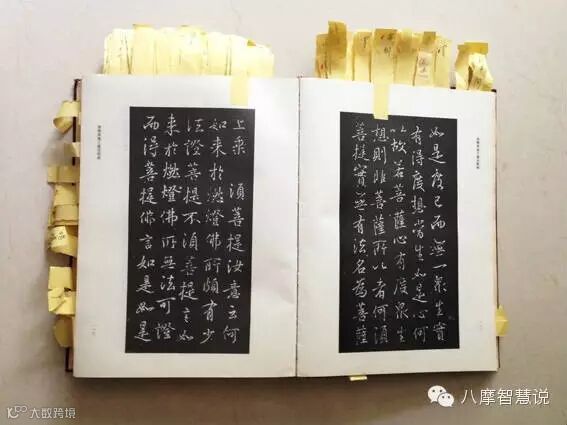 如是度已而無一衆生實
有得度想當生如是心何
以故若菩薩心有度衆生
想則非菩薩所以者何須
菩提實無有法名為菩薩
上乘 須菩提汝意云何
如来於燃燈佛所頗有少
法證菩提不須菩提言如
来於燃燈佛所無法可證
而得菩提佛言如是如是
八摩智慧说
大数跨境